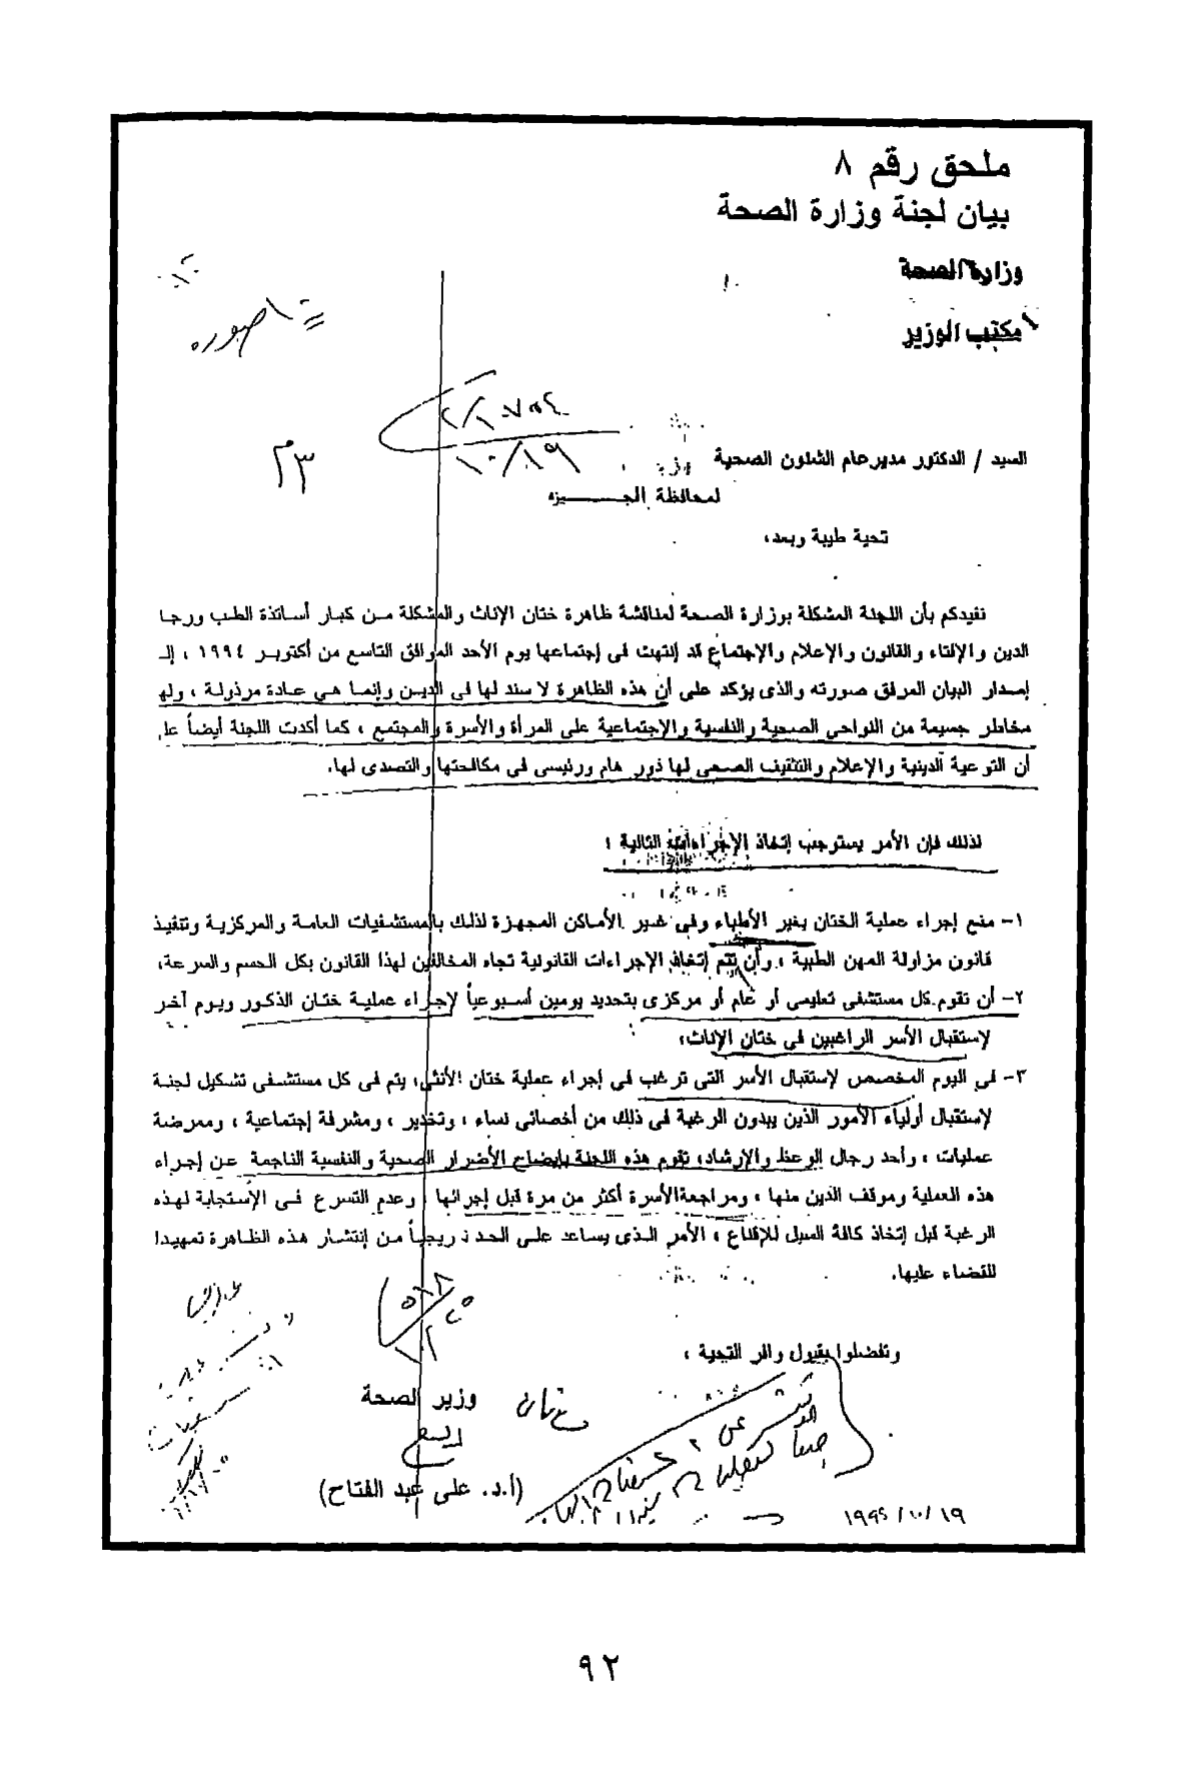 ملحق رقم ٨
بيان لجنة وزارة الصحة
وزارة الصحة
مكتب الوزير
صوره
١٠/١٩
٢٣
السيد / الدكتور مدير عام الشئون الصحية
لمحافظة الجـــــــيزه
تحية طيبة وبعد،
نفيدكم بأن اللجنة المشكلة بوزارة الصحة لمناقشة ظاهرة ختان الإناث والمشكلة من كبار أساتذة الطب ورجا
الدين والإفتاء والقانون والإعلام والإجتماع قد إنتهت فى إجتماعها يوم الأحد الموافق التاسع من أكتوبر ١٩٩٤ ، إلـ
إصدار البيان المرفق صورته والذى يؤكد على أن هذه الظاهرة لا سند لها فى الدين وإنما هي عادة مرذولة ، ولها
مخاطر جسيمة من النواحى الصحية والنفسية والإجتماعية على المرأة والأسرة والمجتمع ، كما أكدت اللجنة أيضاً علـ
أن التوعية الدينية والإعلام والتثقيف الصحى لها دور هام ورئيسى فى مكافحتها والتصدى لها.
لذلك فإن الأمر يستوجب إتخاذ الإجراءات التالية :
١- منع إجراء عملية الختان بغير الأطباء وفى غير الأماكن المجهزة لذلك بالمستشفيات العامة والمركزية وتنفيذ
قانون مزاولة المهن الطبية ، وأن يتم إتخاذ الإجراءات القانونية تجاه المخالفين لهذا القانون بكل الحسم والسرعة،
٢- أن تقوم كل مستشفى تعليمى أو عام أو مركزى بتحديد يومين أسبوعياً لإجراء عملية ختان الذكور ويوم آخر
لإستقبال الأسر الراغبين فى ختان الإناث؛
٣- فى اليوم المخصص لإستقبال الأسر التى ترغب فى إجراء عملية ختان الأنثى، يتم فى كل مستشفى تشكيل لجنة
لإستقبال أولياء الأمور الذين يبدون الرغبة فى ذلك من أخصائى نساء ، وتخدير ، ومشرفة إجتماعية ، وممرضة
عمليات ، وأحد رجال الوعظ والإرشاد، تقوم هذه اللجنة بإيضاح الأضرار الصحية والنفسية الناجمة عن إجراء
هذه العملية وموقف الدين منها ، ومراجعة الأسرة أكثر من مرة قبل إجرائها ، وعدم التسرع فى الإستجابة لهذه
الرغبة قبل إتخاذ كافة السبل للإقناع ، الأمر الذى يساعد على الحد تدريجياً من إنتشار هذه الظاهرة تمهيدا
للقضاء عليها.
وتفضلوا بقبول وافر التحية ،
وزير الصحة
(أ.د. على عبد الفتاح)
١٩٩٤/١٠/١٩
٩٢